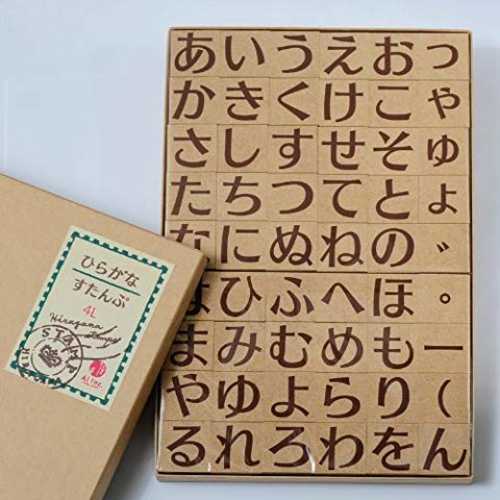 あいうえおっ
かきくけこゃ
さしすせそゅ
たちつてとょ
なにぬねの゛
はひふへほ゜
まみむめもー
やゆよらり(
るれろわをん
ひらがな
すたんぷ
4L
Hiragana
Stamps